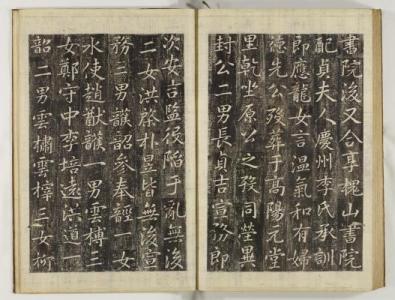 書院後又合享槐山書院
配貞夫人慶州李氏承訓
郎應龍女言溫氣和有婦
德先公歿葬于高陽元堂
里乾坐原公之歿同塋異
封公二男長貞吉宣務郎
次安吉監役陷于亂無後
二女洪
朴昱皆無後宣
務三男猷韶參奉
一女
水使趙猷
一男雲
三
女鄭守中李培遠
一
韶二男雲
雲
三女柳